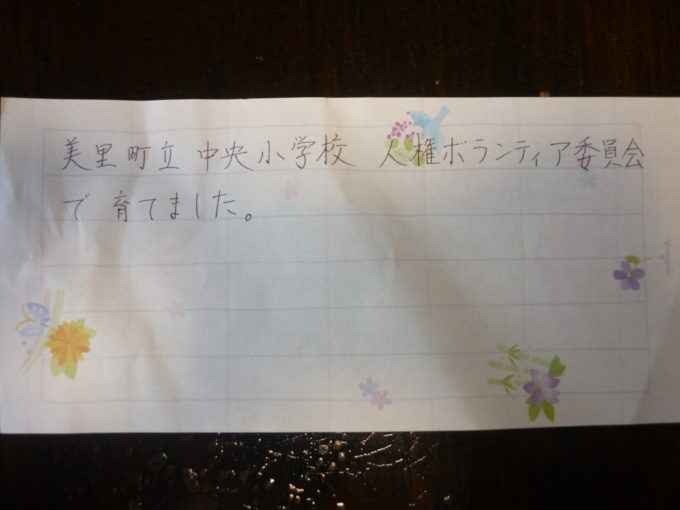 美里町立中央小学校 人権ボランティア委員会
で育てました。